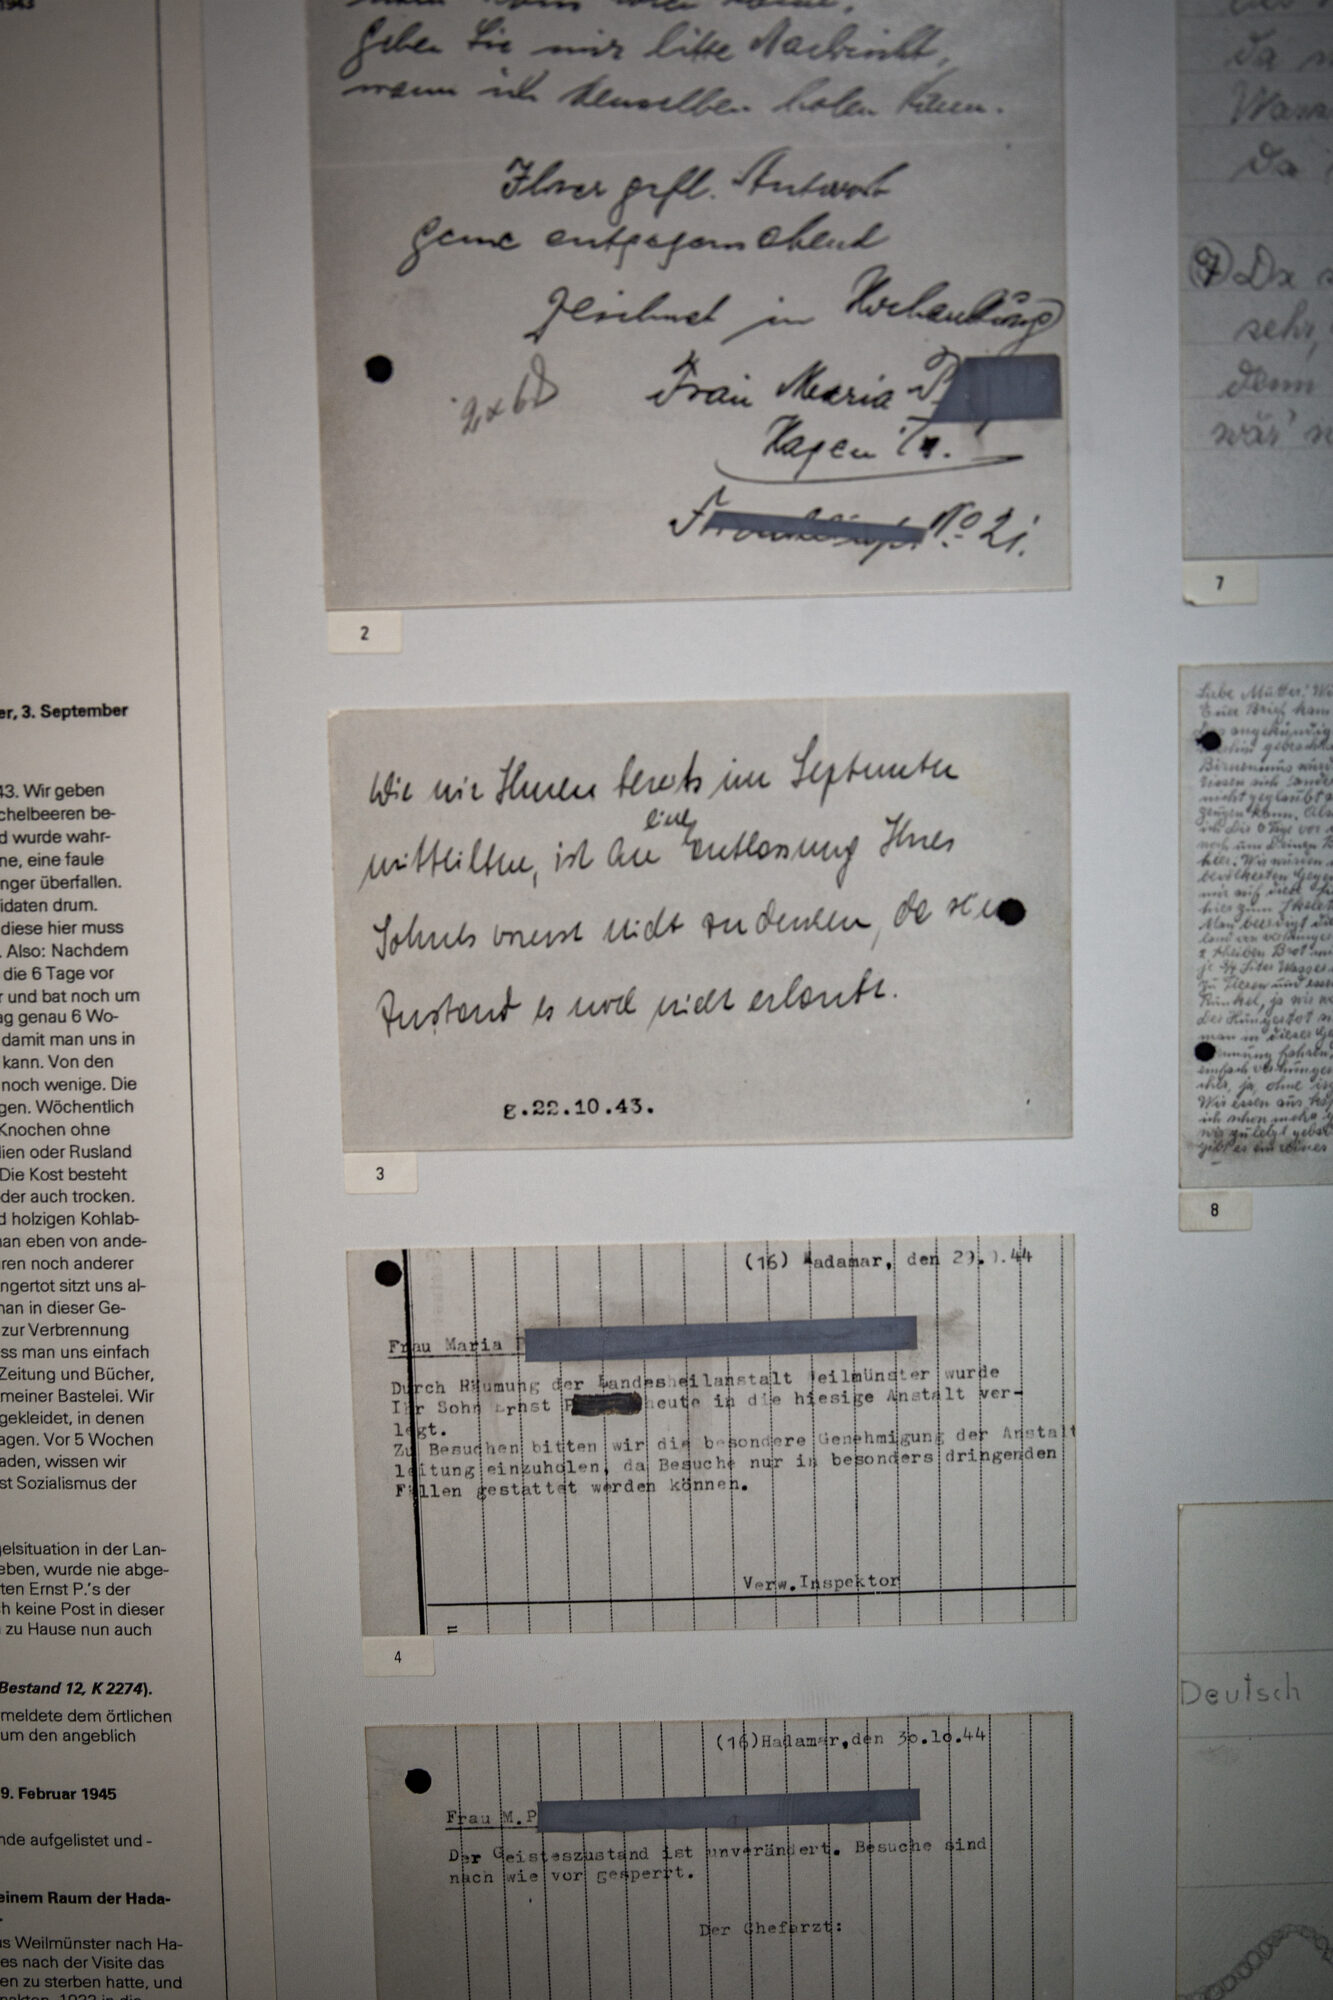 1943
er, 3. September
43. Wir geben
chelbeeren be-
d wurde wahr-
ne, eine faule
nger überfallen.
idaten drum.
diese hier muss
. Also: Nachdem
die 6 Tage vor
r und bat noch um
ag genau 6 Wo-
damit man uns in
kann. Von den
noch wenige. Die
gen. Wöchentlich
Knochen ohne
lien oder Rusland
Die Kost besteht
der auch trocken.
d holzigen Kohlab-
nan eben von ande-
ren noch anderer
ngertot sitzt uns al-
nan in dieser Ge-
zur Verbrennung
ss man uns einfach
Zeitung und Bücher,
meiner Bastelei. Wir
gekleidet, in denen
agen. Vor 5 Wochen
aden, wissen wir
st Sozialismus der
gelsituation in der Lan-
eben, wurde nie abge-
ten Ernst P.'s der
h keine Post in dieser
zu Hause nun auch
Bestand 12, K 2274).
meldete dem örtlichen
um den angeblich
9. Februar 1945
nde aufgelistet und -
einem Raum der Hada-
s Weilmünster nach Ha-
es nach der Visite das
en zu sterben hatte, und
Geben Sie mir bitte Nachricht,
wann ich denselben holen kann.
Ihrer gefl. Antwort
gerne entgegensehend
zeichnet in Hochachtung
Frau Maria P
Hagen i/W.
No. 21.
2
Wie wir Ihnen bereits im September
mitteilten, ist an eine Entlassung Ihres
Sohnes vorerst nicht zu denken, da sein
Zustand es noch nicht erlaubt.
g.22.10.43.
3
(16) Hadamar, den 29. .44
Frau Maria
Durch Räumung der Landesheilanstalt Weilmünster wurde
Ihr Sohn Ernst P heute in die hiesige Anstalt ver-
legt.
Zu Besuchen bitten wir die besondere Genehmigung der Anstalt
leitung einzuholen, da Besuche nur in besonders dringenden
Fällen gestattet werden können.
Verw.Inspektor
4
(16)Hadamar,den 30.10.44
Frau M.P
Der Geisteszustand ist unverändert. Besuche sind
nach wie vor gesperrt.
Der Chefarzt:
da
Da
7 Da
sehr,
denn
wär'
7
Liebe Mutter!
Euer Brief kam
8
Deutsch